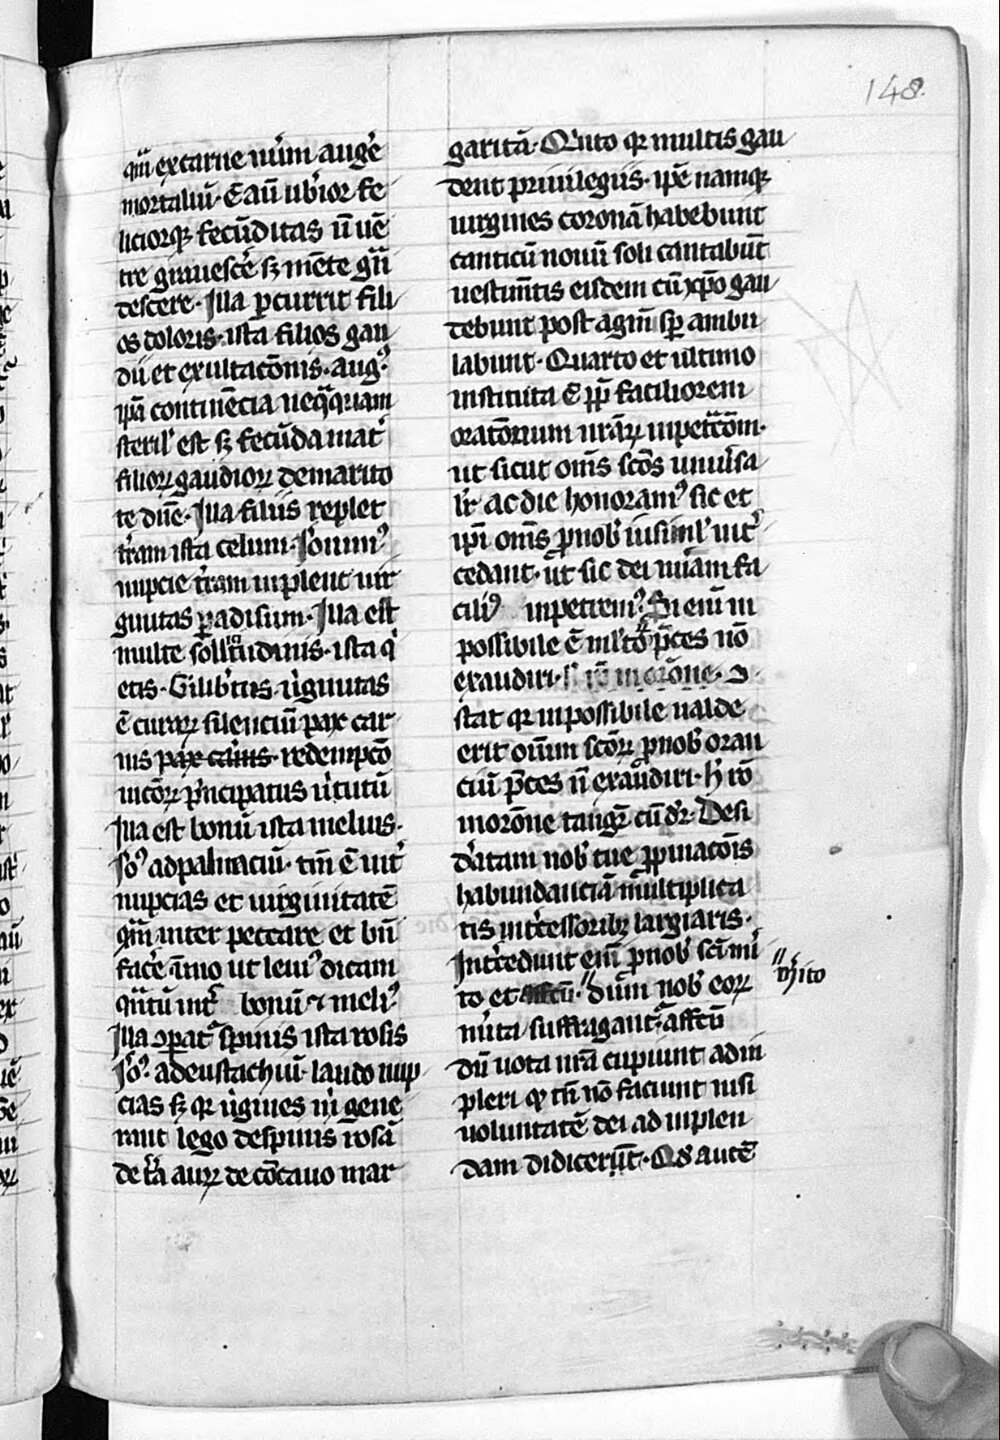 148.
qm̄ ex carne nūm auge᷑
mortaliū · Ē aū ub̾ior fe
liciorqꝫ fecūditas n̄ uē
tre grauesc̾e sꝫ mēte gn̄
descere · Illa ꝑcurrit fili
os doloris · ista filios gau
dii et exultacōnis · augꝰ ·
ip̄a continēcia neq̄quam
steril̾ est sꝫ fecūda mat̾
filioꝝ gaudioꝝ de marito
te dn̄e · Illa filiis replet
t̾ram ista celum · Iōnimꝰ
nupcie t̾ram inplent uir
ginitas ꝑadisum · Illa est
multe sollicitudinis · ista q̾
etis · Gilib̾tus ù̾ginitas
ē curaꝝ silenciū pax car
nis pax carnis · redempcō
uicōꝝ p̾ncipatus u̾tutū
Illa est bonū ista melius ·
Iōꝰ ad palmaciū · tm̄ ē int̾
nupcias et uirginitatē
qm̄ inter peccare et bn̄
fac̾e īmo ut leuiꝰ dicam
qn̄tū int̾ bonū ⁊ meliꝰ
Illa ꝯꝑat᷑ spinis ista rosis
Iōꝰ · ad eustachiū · laudo nup
cias sꝫ qꝛ u̾gines m̾ gene
rant lego de spinis rosā
de t̾ra auꝝ de cōcauo mar
garitā · Qūito qꝛ multis gau
dent priuilegiis · ip̄e namqꝫ
uirgines coronā habebunt
canticū nouū soli cantabūt
uestim̄tis eisdem cū xp̄o gau
debunt post agnū sp̄ ambu
labunt · Quarto et ultimo
instituta ē ꝓpt̾ faciliorem
oratōnum nrāꝝ inpet᷑cōm ·
ut sicut om̄s sc̄os uniu̾sa
lr̄ ac die honoramꝰ sic et
ip̄i om̄s ꝓ nob̾ iusimul̾ int̾
cedant · ut sic dei mīam fa
ciliꝰ inpetremꝰ Si enī in
possibile ē mltoꝝ p̄ces nō
exaudiri ·
stat qꝛ inpossibile ualde
erit oīum sc̄oꝝ ꝓ nob̾ oran
ciū p̄ces n̄ exaudiri · h̾ rō
in orōne tangit᷑ cū dr̄ · Desi
d̾atam nob̾ tue ꝓpiciacōis
habundanciā m̄ltiplica
tis int̾cessoribꝫ largiaris ·
Int̾cedunt em̄ ꝓ nob̾ sc̄i m̾i
to et affcū · dum nob̾ eoꝝ
m̾ito
m̾ita suffragant᷑ · affcū
dū uota nrā cupiunt adin
pleri qꝫ tn̄ nō faciunt nisi
uoluntatē dei ad inplen
dam didicerūt · Qd autē